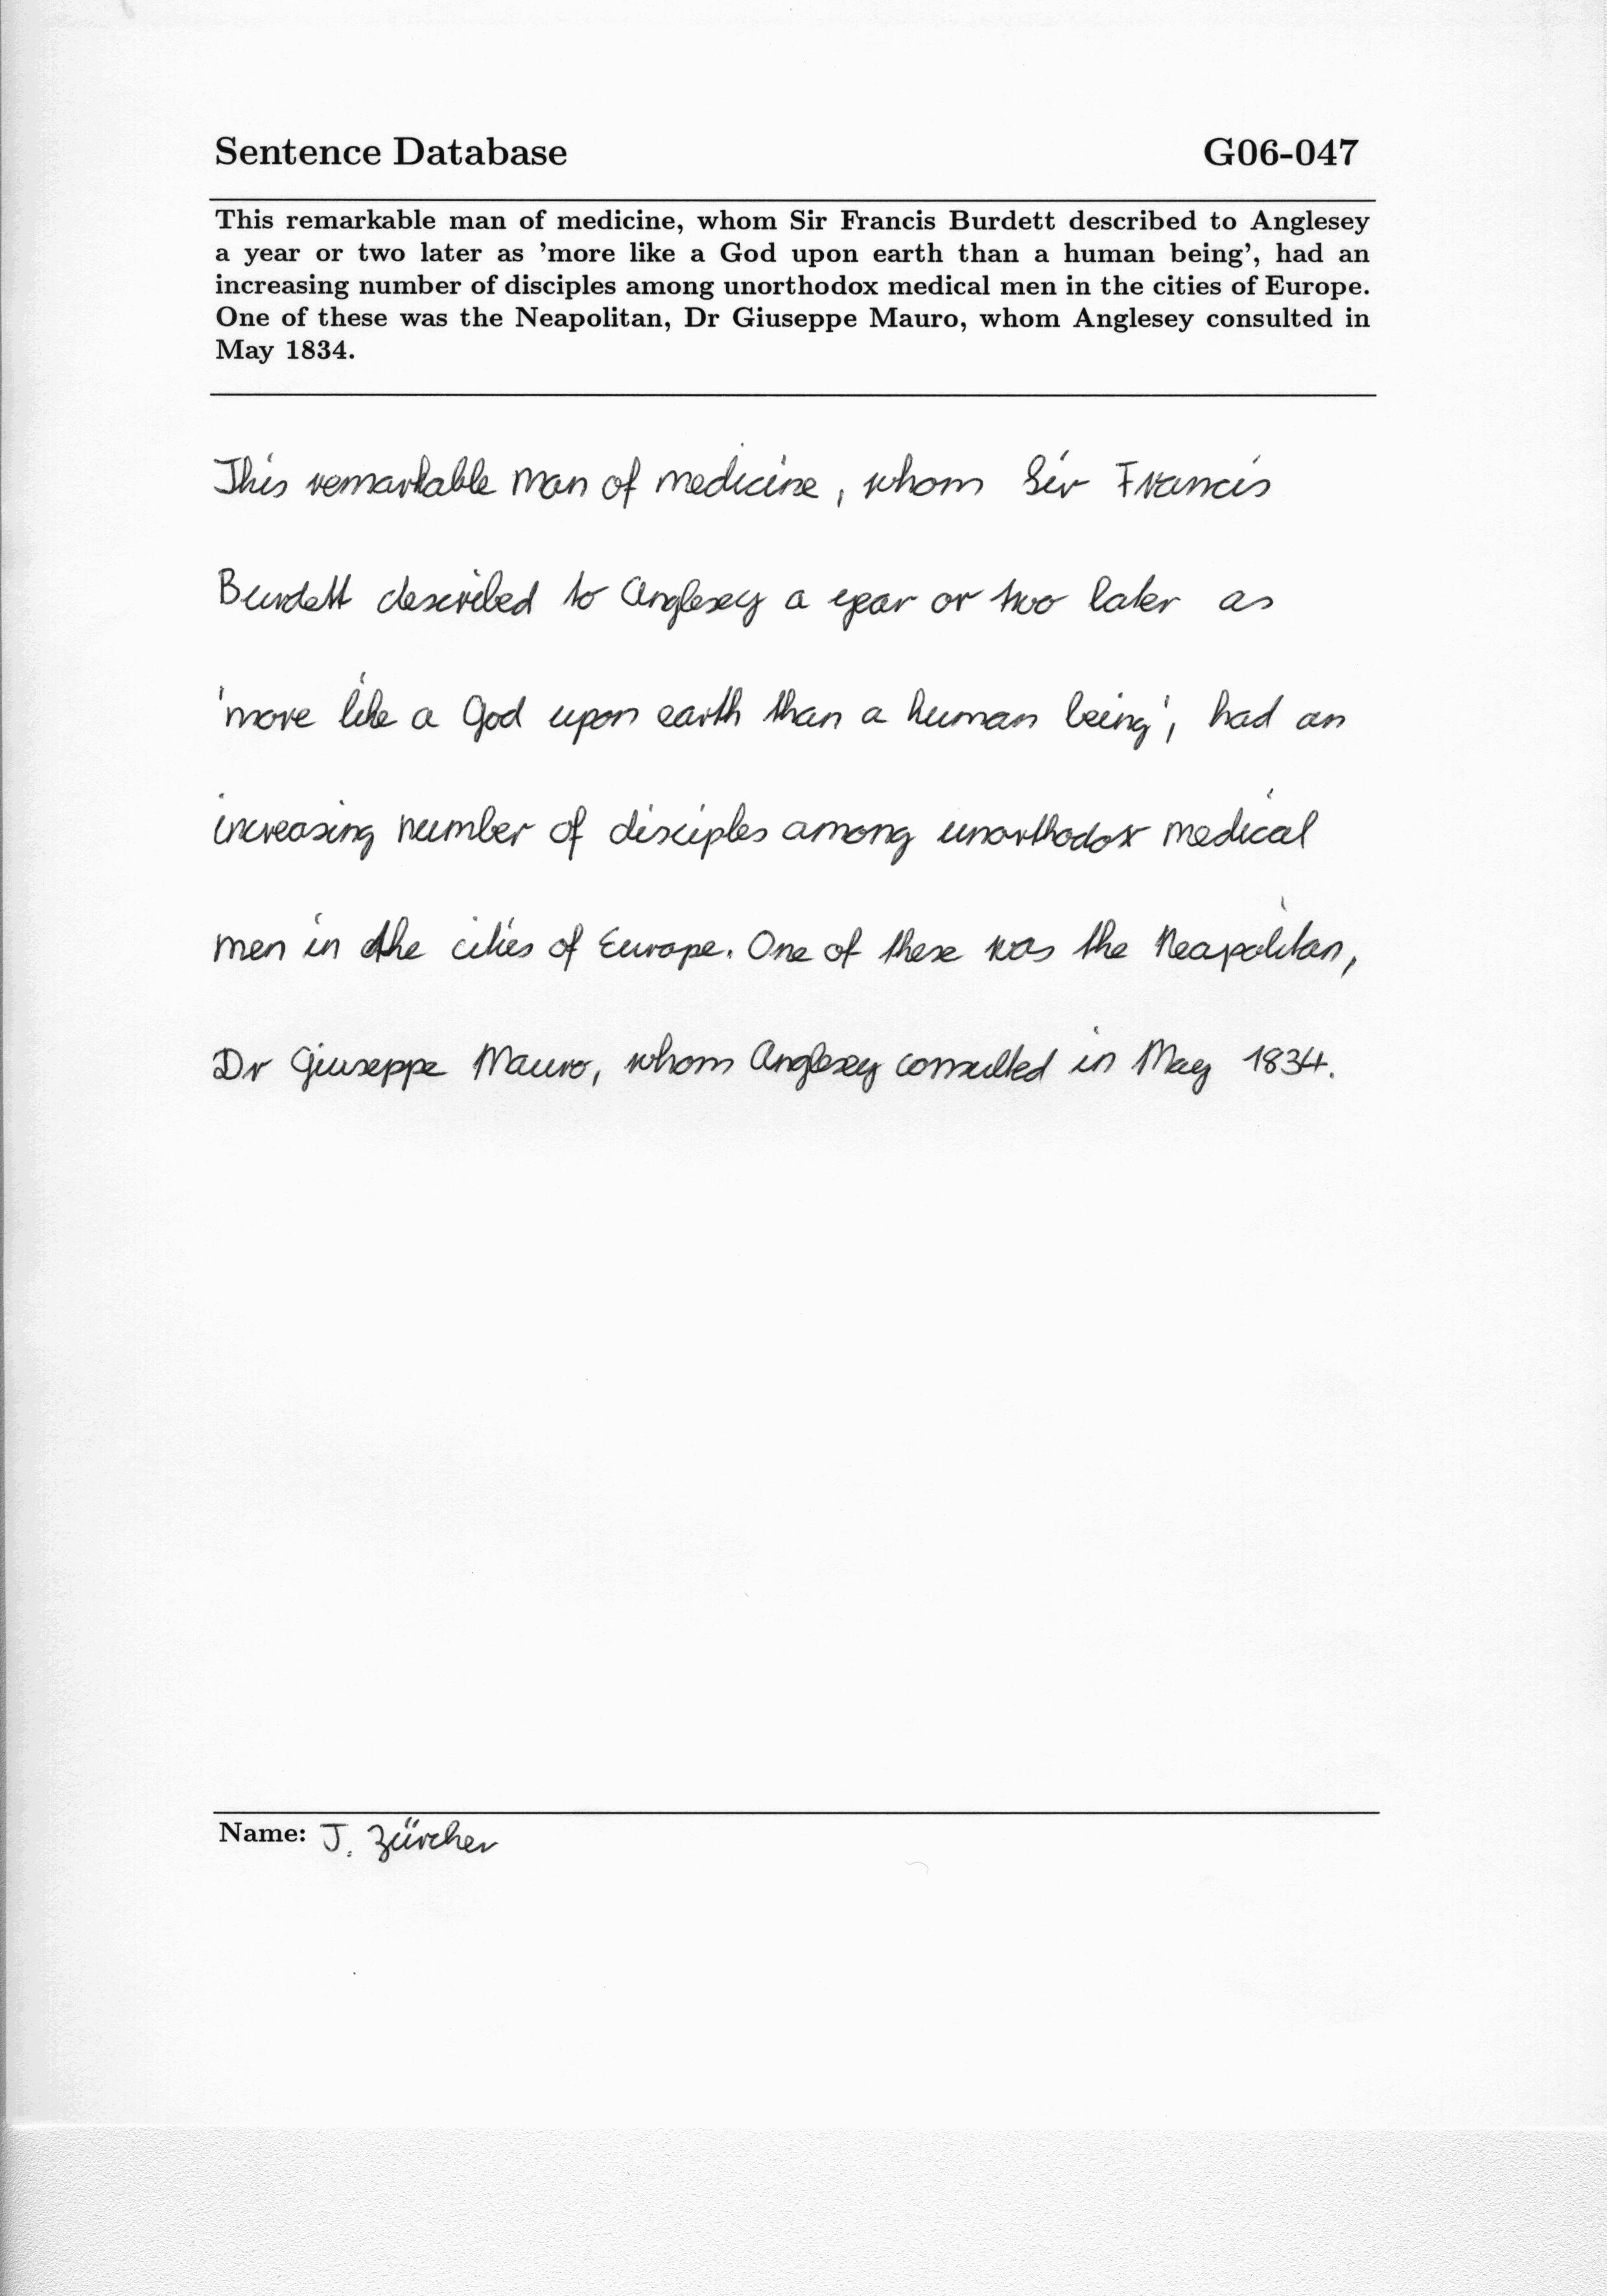 Sentence Database G06-047
This remarkable man of medicine, whom Sir Francis Burdett described to Anglesey
a year or two later as 'more like a God upon earth than a human being', had an
increasing number of disciples among unorthodox medical men in the cities of Europe.
One of these was the Neapolitan, Dr Giuseppe Mauro, whom Anglesey consulted in
May 1834.
This remarkable man of medicine, whom Sir Francis
Burdett described to Anglesey a year or two later as
'more like a God upon earth than a human being', had an
increasing number of disciples among unorthodox medical
men in the cities of Europe. One of these was the Neapolitan,
Dr Giuseppe Mauro, whom Anglesey consulted in May 1834.
Name: J. Zürcher